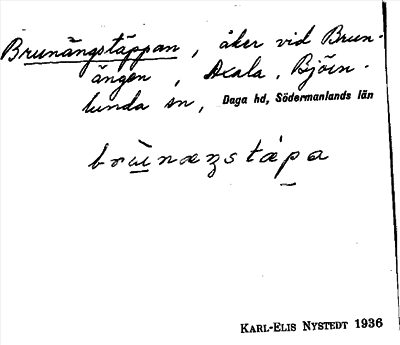 Brunängstäppan, åker vid Brun-
ängen, Axala, Björn-
lunda sn, Daga hd, Södermanlands län
KARL-ELIS NYSTEDT 1936